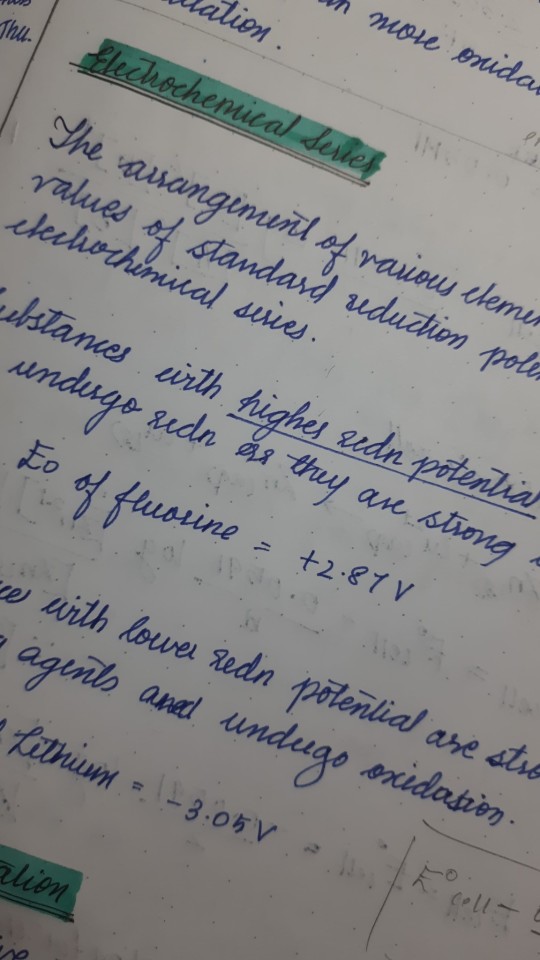 Thu.
more
Electrochemical Series
The arrangement of various
values of standard reduction
electrochemical series.
with higher redn potential
undergo redn as they are strong
E0 of fluorine = +2.87 V
with lower redn potential are
agents and undergo oxidation.
Lithium = -3.05 V
E° cell -